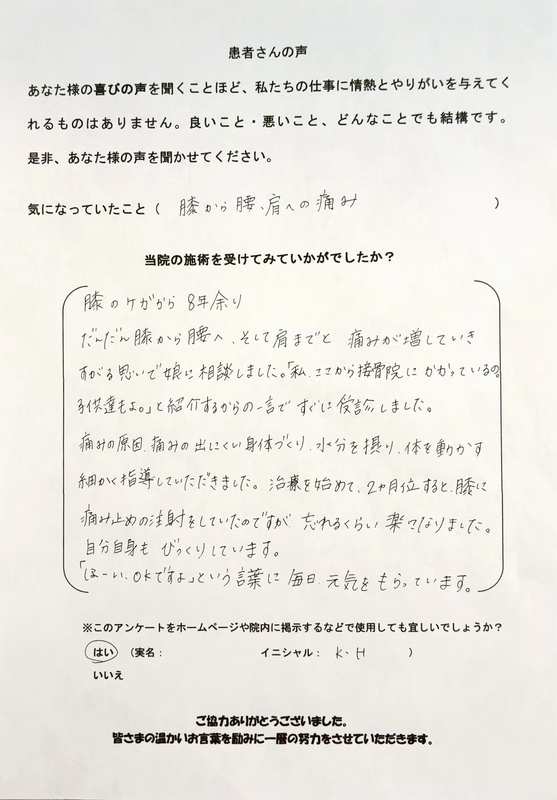 患者さんの声
あなた様の喜びの声を聞くことほど、私たちの仕事に情熱とやりがいを与えてく
れるものはありません。良いこと・悪いこと、どんなことでも結構です。
是非、あなた様の声を聞かせてください。
気になっていたこと（ 膝から腰、肩への痛み ）
当院の施術を受けてみていかがでしたか？
膝のケガから 8年余り
だんだん膝から腰へ、そして肩までと 痛みが増していき
すがる思いで娘に相談しました。「私、ここから接骨院にかかっているの。
子供達もよ。」と紹介するからの一言で すぐに受診しました。
痛みの原因、痛みの出にくい身体づくり、水分を摂り、体を動かす
細かく指導していただきました。治療を始めて、2ヵ月位すると、膝に
痛み止めの注射をしていたのですが 忘れるくらい 楽になりました。
自分自身も びっくりしています。
「はーい、OKですよ」という言葉に 毎日 元気をもらっています。
※このアンケートをホームページや院内に掲示するなどで使用しても宜しいでしょうか？
はい （実名： イニシャル： K・H ）
いいえ
ご協力ありがとうございました。
皆さまの温かいお言葉を励みに一層の努力をさせていただきます。